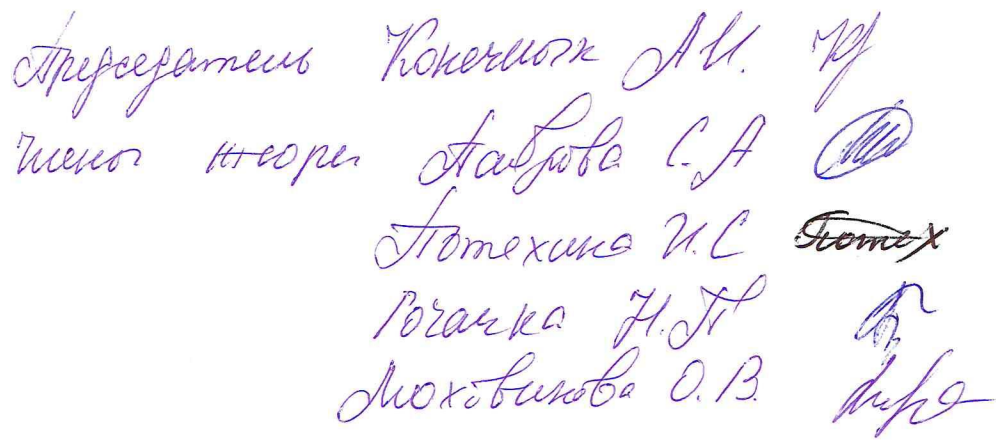 Председатель Конечных А.И.
Члены жюри Лаврова С.А
Потехина И.С Потех
Гочачка Н.П
Моховикова О.В.